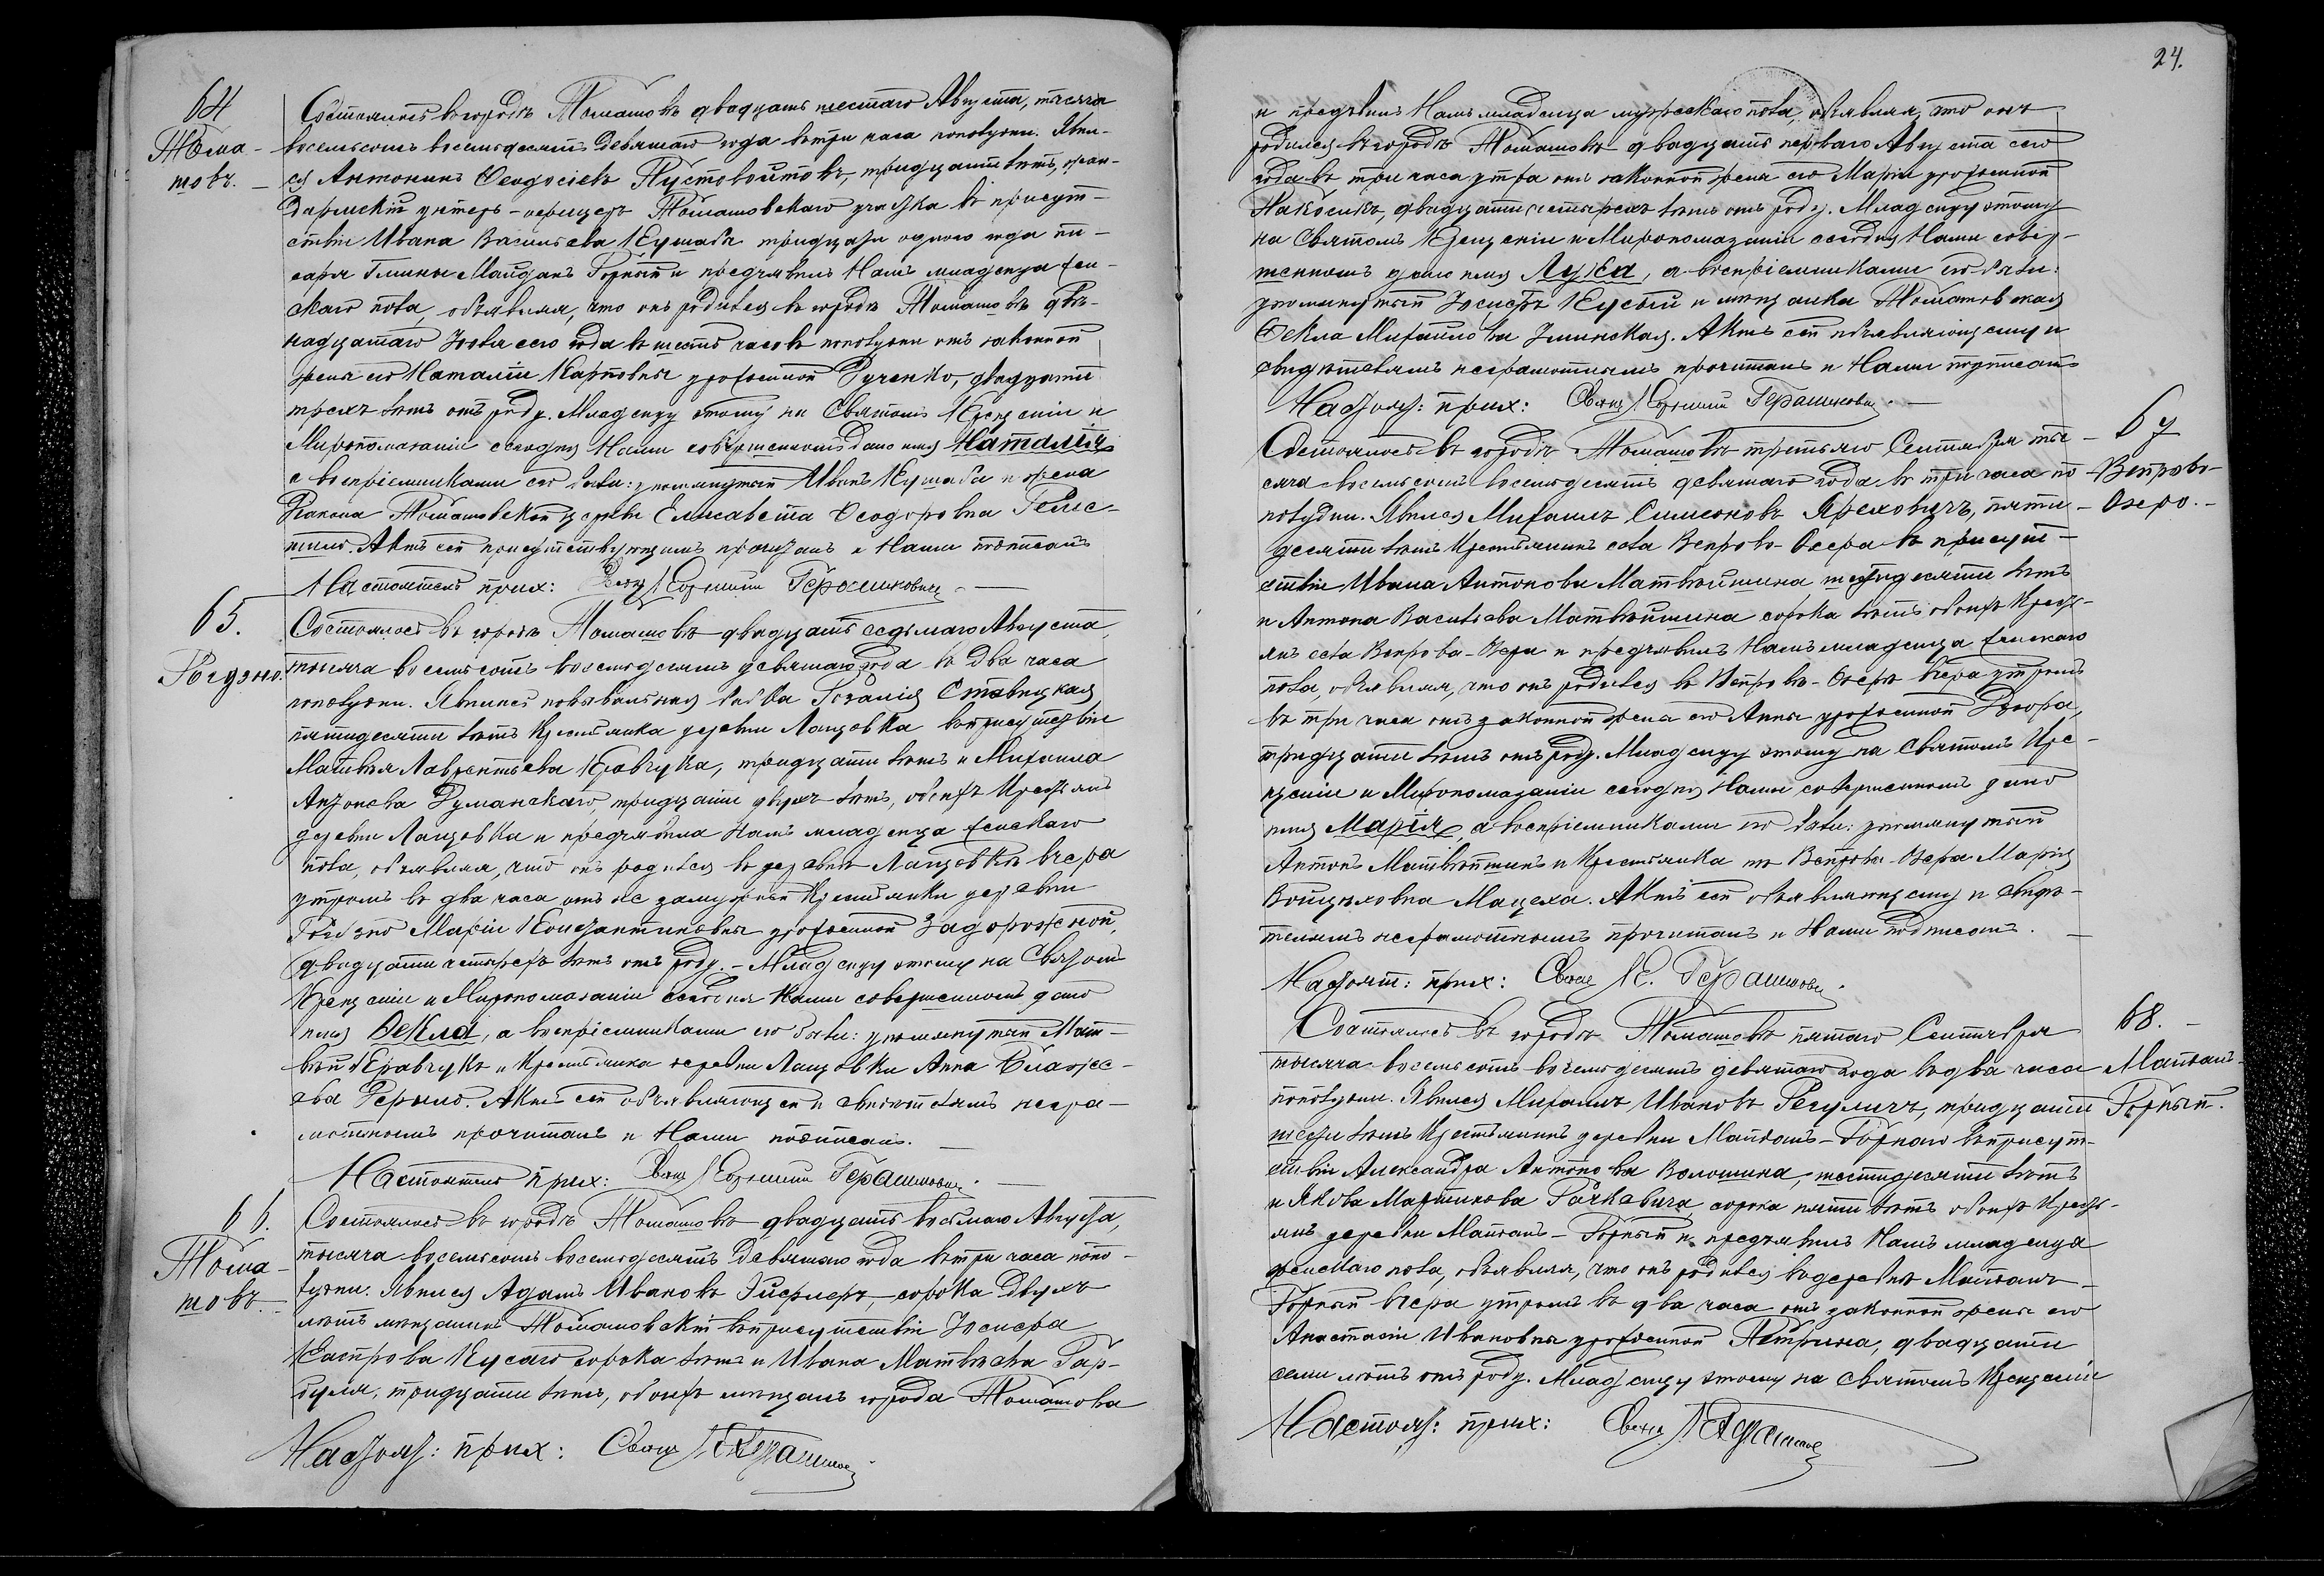 64
Тома-
шовъ.
Состоялось въ городѣ Томашовѣ двадцать шестаго Августа, тысяча
восемьсотъ восемьдесятъ девятаго года въ три часа пополудни. Явил-
ся Антонинъ Ѳеодосіевъ Пустовойтовъ, тридцати лѣтъ, жан-
дармскій унтеръ-офицеръ Томашовскаго участка въ присут-
ствіи Ивана Васильева Кушаба тридцати одного года пи-
саря Гмины Майданъ Горный и предъявилъ Намъ младенца жен-
скаго пола, объявляя, что онъ родился въ городѣ Томашовѣ двѣ-
надцатаго Іюля сего года въ шесть часовъ пополудни отъ законной
жены его Наталіи Карповны урожденной Рученко, двадцати
трехъ лѣтъ отъ роду. Младенцу этому на Святомъ Крещеніи и
Миропомазаніи сегодня Нами совершенномъ дано имя Наталія
а воспріемниками его были: упомянутый Иванъ Кушаба и жена
Дьякона Томашовской церкви Елисавета Ѳеодоровна
Актъ сей присутствующимъ прочитанъ и Нами подписанъ
Настоятель прих: Свящ Корнилій Герасимович
65.
Рогузно.
Состоялось въ городѣ Томашовѣ двадцать седьмаго Августа,
тысяча восемьсотъ восемьдесятъ девятаго года въ два часа
пополудни. Явилась повивальная бабка Розалія Ставицкая
пятидесяти лѣтъ крестьянка деревни Лащовка въ присутствіи
Матвѣя Лаврентьева Кравчука, тридцати лѣтъ и Михаила
Антонова Гуманскаго тридцати двухъ лѣтъ, обоихъ крестьянъ
деревни Лащовка и предъявила Намъ младенца женскаго
пола, объявляя, что онъ родился въ деревнѣ Лащовкѣ вчера
утромъ въ два часа отъ незамужней крестьянки деревни
Рогузно Маріи Константиновны урожденной Задорожной,
двадцати четырехъ лѣтъ отъ роду. - Младенцу этому на Святомъ
Крещеніи и Миропомазаніи сегодня Нами совершенномъ дано
имя Ѳекла, а воспріемниками его были: упомянутый Мат-
вѣй Кравчукъ и крестьянка деревни Лащовки Анна Власье-
ва Герыло. Актъ сей объявляющей и свидѣтелямъ негра-
мотнымъ прочитанъ и Нами подписанъ.
Настоятель прих: Свящ Корнилій Герасимович.
66.
Тома-
шовъ.
Состоялось въ городѣ Томашовѣ двадцать восьмаго Августа,
тысяча восемьсотъ восемьдесятъ девятаго года въ три часа попо-
лудни. Явился Адамъ Ивановъ сорока двухъ
лѣтъ мѣщанинъ Томашовскій въ присутствіи Іосифа
Каспрова Кусаго сорока лѣтъ и Ивана Матвѣева Гар-
буля, тридцати лѣтъ, обоихъ мѣщанъ города Томашова
Настоят: прих: Свящ К Герасимов
24.
и предъявилъ Намъ младенца мужескаго пола, объявляя, что онъ
родился въ городѣ Томашовѣ двадцать перваго Августа сего
года въ три часа утра отъ законной жены его Маріи урожденной
Накосикъ, двадцати четырехъ лѣтъ отъ роду. Младенцу этому
на Святомъ Крещеніи и Миропомазаніи сегодня Нами совер-
шенномъ дано имя Лука, а воспріемниками его были:
упомянутый Іосифъ Кусый и мѣщанка Томашовская
Ѳекла Михайлова Актъ сей объявляющему и
свидѣтелямъ неграмотнымъ прочитанъ и Нами подписанъ
Настоят: прих: Свящ Корнилій Герасимович.
67
Вепрово-
Озеро.
Состоялось въ городѣ Томашовѣ третьяго Сентября ты-
сяча восемьсотъ восемьдесятъ девятаго года въ три часа по
полудни. Явился Михаилъ Симеоновъ Яреховичъ, пяти-
десяти лѣтъ крестьянинъ села Вепрово-Озера въ присут-
ствіи Ивана Антонова Матвѣйшина шестидесяти лѣтъ
и Антона Васильева Матвѣйшина сорока лѣтъ обоихъ крестъ-
янъ села Вепрова-Озера и предъявилъ Намъ младенца женскаго
пола, объявляя, что онъ родился въ Вепровѣ-Озерѣ вчера утромъ
въ три часа отъ законной жены его Анны урожденной Дзюра,
тридцати лѣтъ отъ роду. Младенцу этому на Святомъ Кре-
щеніи и Миропомазаніи сегодня Нами совершенномъ дано
имя Марія, а воспріемниками его были: упомянутый
Антонъ Матвѣйшинъ и крестьянка изъ Вепрова-Озера Марія
Войцѣховна Мацеха. Актъ сей объявляющему и свидѣ-
телямъ неграмотнымъ прочитанъ и Нами подписанъ.
Настоят: прих: Свящ К. Герасимов.
68.
Майданъ-
Горный.
Состоялось въ городѣ Томашовѣ пятаго Сентября
тысяча восемьсотъ восемьдесятъ девятаго года въ два часа
пополудни. Явился Михаилъ Ивановъ Регуличъ, тридцати
шести лѣтъ крестьянинъ деревни Майданъ-Горнаго въ присут-
ствіи Александра Антонова Волошина, шестидесяти лѣтъ
и Якова Мартинова Гачкевича сорока пяти лѣтъ обоихъ крестъ-
янъ деревни Майданъ-Горный и предъявилъ Намъ младенца
женскаго пола, объявляя, что онъ родился въ деревнѣ Майданъ-
Горный вчера утромъ въ два часа отъ законной жены его
Анастасіи Ивановны урожденной Петрина, двадцати
семи лѣтъ отъ роду. Младенцу этому на Святомъ Крещеніи
Настоят: прих: Свящ К Герасимов